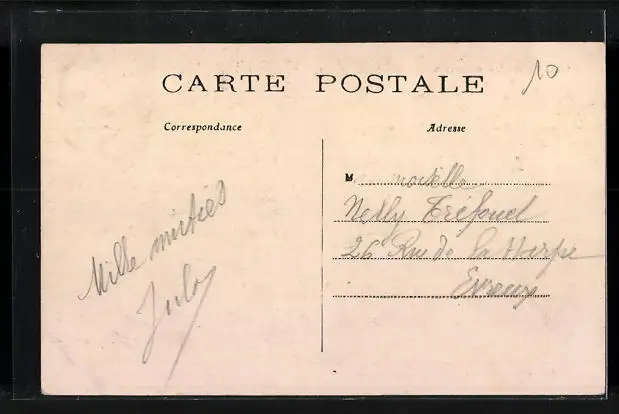 CARTE POSTALE
10
Correspondance
Adresse
Mademoiselle
Nelly Tréfouel
26 Rue de la Harpe
Evreux
Mille